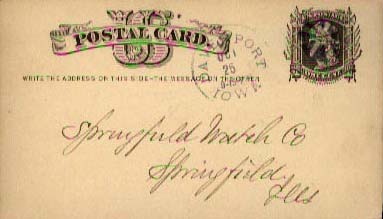 POSTAL CARD.
WRITE THE ADDRESS ON THIS SIDE-THE MESSAGE ON THE OTHER
PORT
25
IOWA
Springfield Watch Co
Springfield
Ills